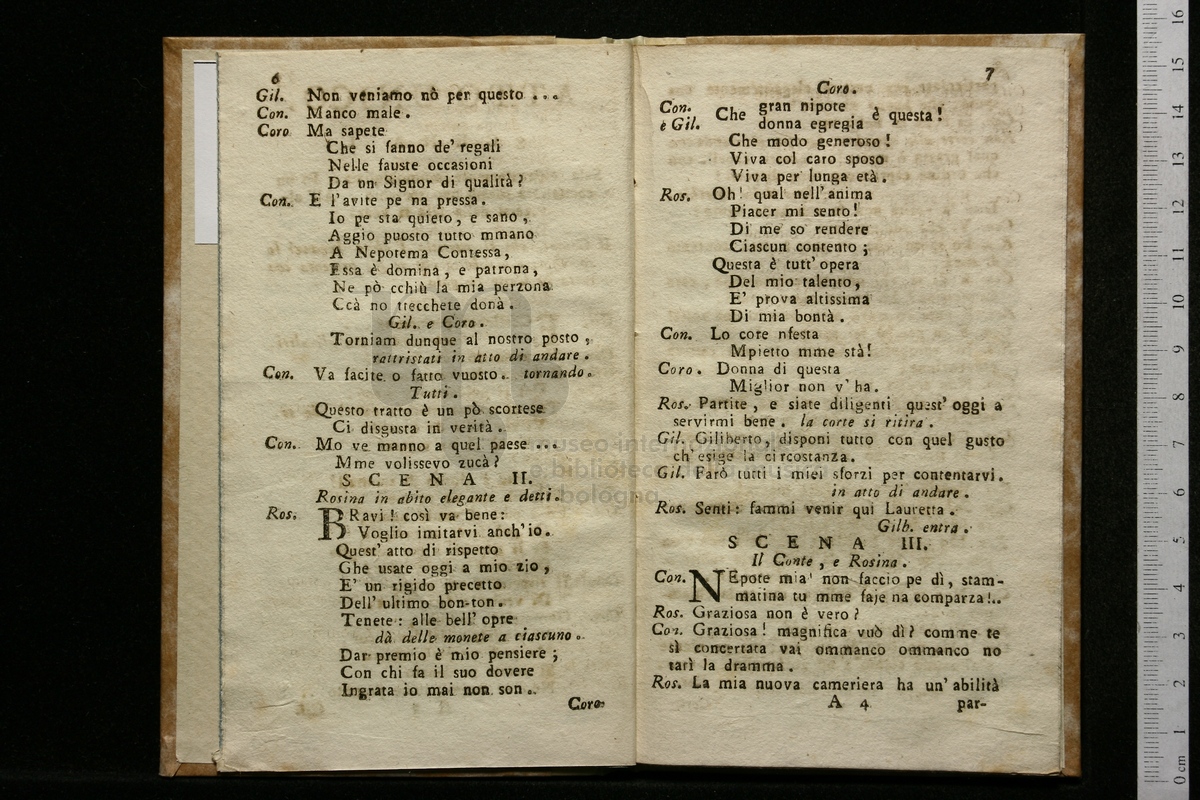 6
Gil. Non veniamo nò per questo ...
Con. Manco male.
Coro Ma sapete
Che si fanno de' regali
Nelle fauste occasioni
Da un Signor di qualità?
Con. E l'avite pe na pressa.
Io pe sta quieto, e sano,
Aggio puosto tutto mmano
A Nepotema Contessa,
Essa è domina, e patrona,
Ne pò cchiù la mia perzona
Ccà no trecchete donà.
Gil. e Coro.
Torniam dunque al nostro posto,
rattristati in atto di andare.
Con. Va facite o fatto vuosto. tornando.
Tutti.
Questo tratto è un pò scortese
Ci disgusta in verità.
Con. Mo ve manno a quel paese ...
Mme volissevo zucà?
SCENA II.
Rosina in abito elegante e detti.
Ros. BRavi! così va bene:
Voglio imitarvi anch'io.
Quest' atto di rispetto
Ghe usate oggi a mio zio,
E' un rigido precetto
Dell' ultimo bon-ton.
Tenete: alle bell' opre
dà delle monete a ciascuno.
Dar premio è mio pensiere;
Con chi fa il suo dovere
Ingrata io mai non son.
Coro
7
Coro.
Con. è Gil. Che gran nipote donna egregia è questa!
Che modo generoso!
Viva col caro sposo
Viva per lunga età.
Ros. Oh! qual nell'anima
Piacer mi sento!
Di me so rendere
Ciascun contento;
Questa è tutt' opera
Del mio talento,
E' prova altissima
Di mia bontà.
Con. Lo core nfesta
Mpietto mme stà!
Coro. Donna di questa
Miglior non v'ha.
Ros. Partite, e siate diligenti quest' oggi a
servirmi bene. la corte si ritira.
Gil. Giliberto, disponi tutto con quel gusto
ch'esige la circostanza.
Gil. Farò tutti i miei sforzi per contentarvi.
in atto di andare.
Ros. Senti: fammi venir qui Lauretta.
Gilb. entra.
SCENA III.
Il Conte, e Rosina.
Con. NEpote mia! non faccio pe dì, stam-
matina tu mme faje na comparza!..
Ros. Graziosa non è vero?
Con. Graziosa! magnifica vuò dì? comme te
sì concertata vai ommanco ommanco no
tarì la dramma.
Ros. La mia nuova cameriera ha un' abilità
A 4
par-
museo internazionale
e biblioteca della musica
bologna
0 cm 1 2 3 4 5 6 7 8 9 10 11 12 13 14 15 16